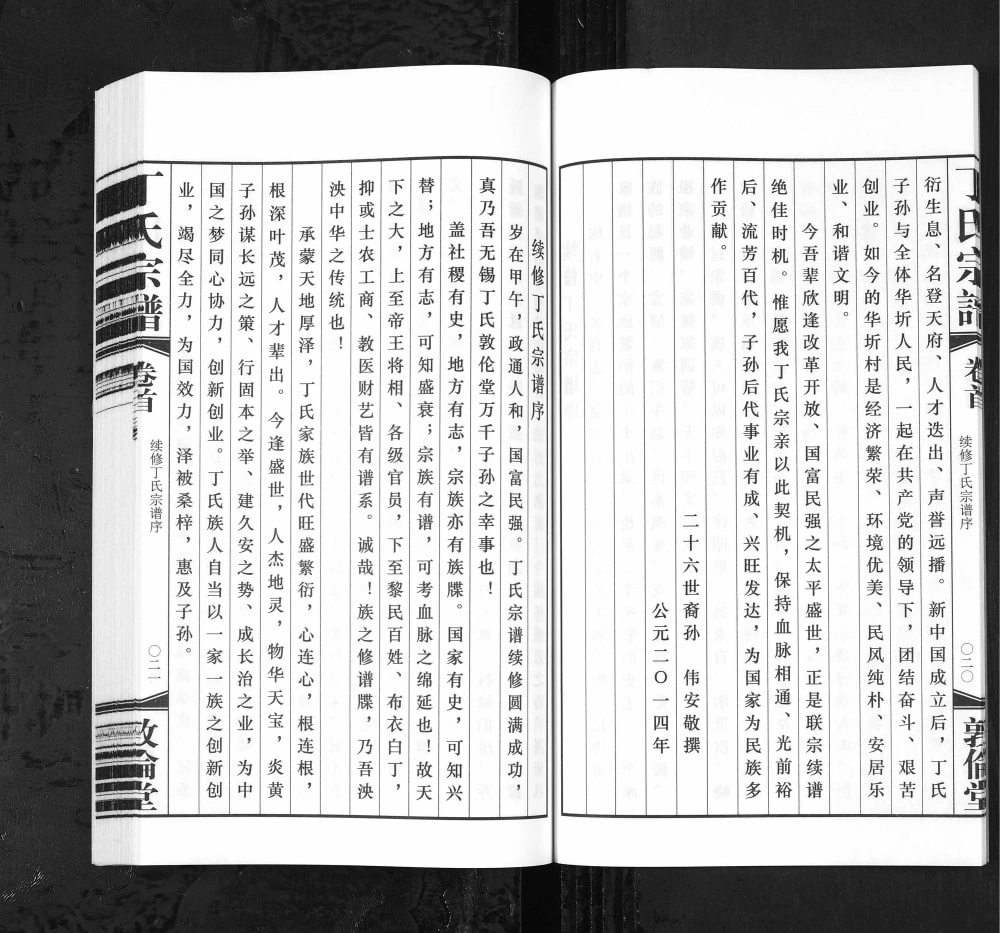 丁氏宗谱
卷首
续修丁氏宗谱序
〇二〇
敦伦堂
衍生息、名登天府、人才迭出、声誉远播。新中国成立后，丁氏
子孙与全体华圻人民，一起在共产党的领导下，团结奋斗、艰苦
创业。如今的华圻村是经济繁荣、环境优美、民风纯朴、安居乐
业、和谐文明。
今吾辈欣逢改革开放、国富民强之太平盛世，正是联宗续谱
绝佳时机。惟愿我丁氏宗亲以此契机，保持血脉相通、光前裕
后、流芳百代，子孙后代事业有成、兴旺发达，为国家为民族多
作贡献。
二十六世裔孙 伟安敬撰
公元二〇一四年
续修丁氏宗谱序
岁在甲午，政通人和，国富民强。丁氏宗谱续修圆满成功，
真乃吾无锡丁氏敦伦堂万千子孙之幸事也！
盖社稷有史、地方有志，宗族亦有族牒。国家有史，可知兴
替；地方有志，可知盛衰；宗族有谱，可考血脉之绵延也！故天
下之大，上至帝王将相、各级官员，下至黎民百姓、布衣白丁，
抑或士农工商、教医财艺皆有谱系。诚哉！族之修谱牒，乃吾泱
泱中华之传统也！
承蒙天地厚泽，丁氏家族世代旺盛繁衍，心连心，根连根，
根深叶茂，人才辈出。今逢盛世，人杰地灵，物华天宝，炎黄
子孙谋长远之策、行固本之举、建久安之势、成长治之业，为中
国之梦同心协力，创新创业。丁氏族人自当以一家一族之创新创
业，竭尽全力，为国效力，泽被桑梓，惠及子孙。
丁氏宗谱
卷首
续修丁氏宗谱序
〇二一
敦伦堂